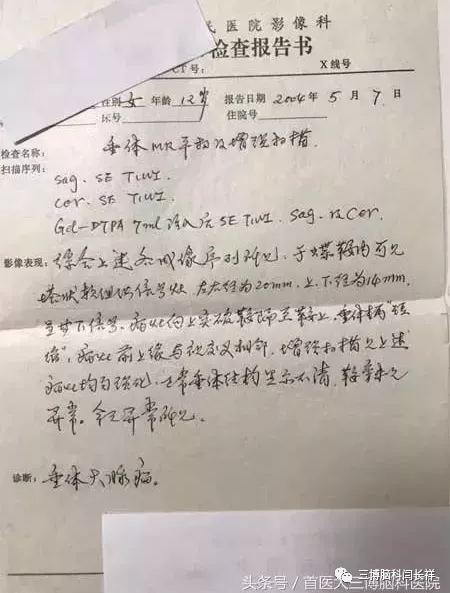 民医院影像科
检查报告书
CT号: X线号
性别 女 年龄 12岁 报告日期 2004年 5月 7日
床号 住院号
检查名称: 垂体MR平扫及增强扫描.
扫描序列: Sag. SE T1WI.
Cor. SE T1WI.
Gd-DTPA 7ml注入后SE T1WI. Sag. 及Cor.
影像表现: 综合上述各成像序列所见: 于蝶鞍内可见
块状软组织信号灶, 左右径为20mm, 上、下径为14mm,
呈等T1信号, 病灶向上突破鞍隔至鞍上, 垂体柄"短
缩", 病灶前上缘与视交叉相邻, 增强扫描见上述
病灶均匀强化, 正常垂体结构显示不清, 鞍旁未见
异常。余无异常所见。
诊断: 垂体大腺瘤。
三博脑科闫长祥
头条号 / 首医大三博脑科医院